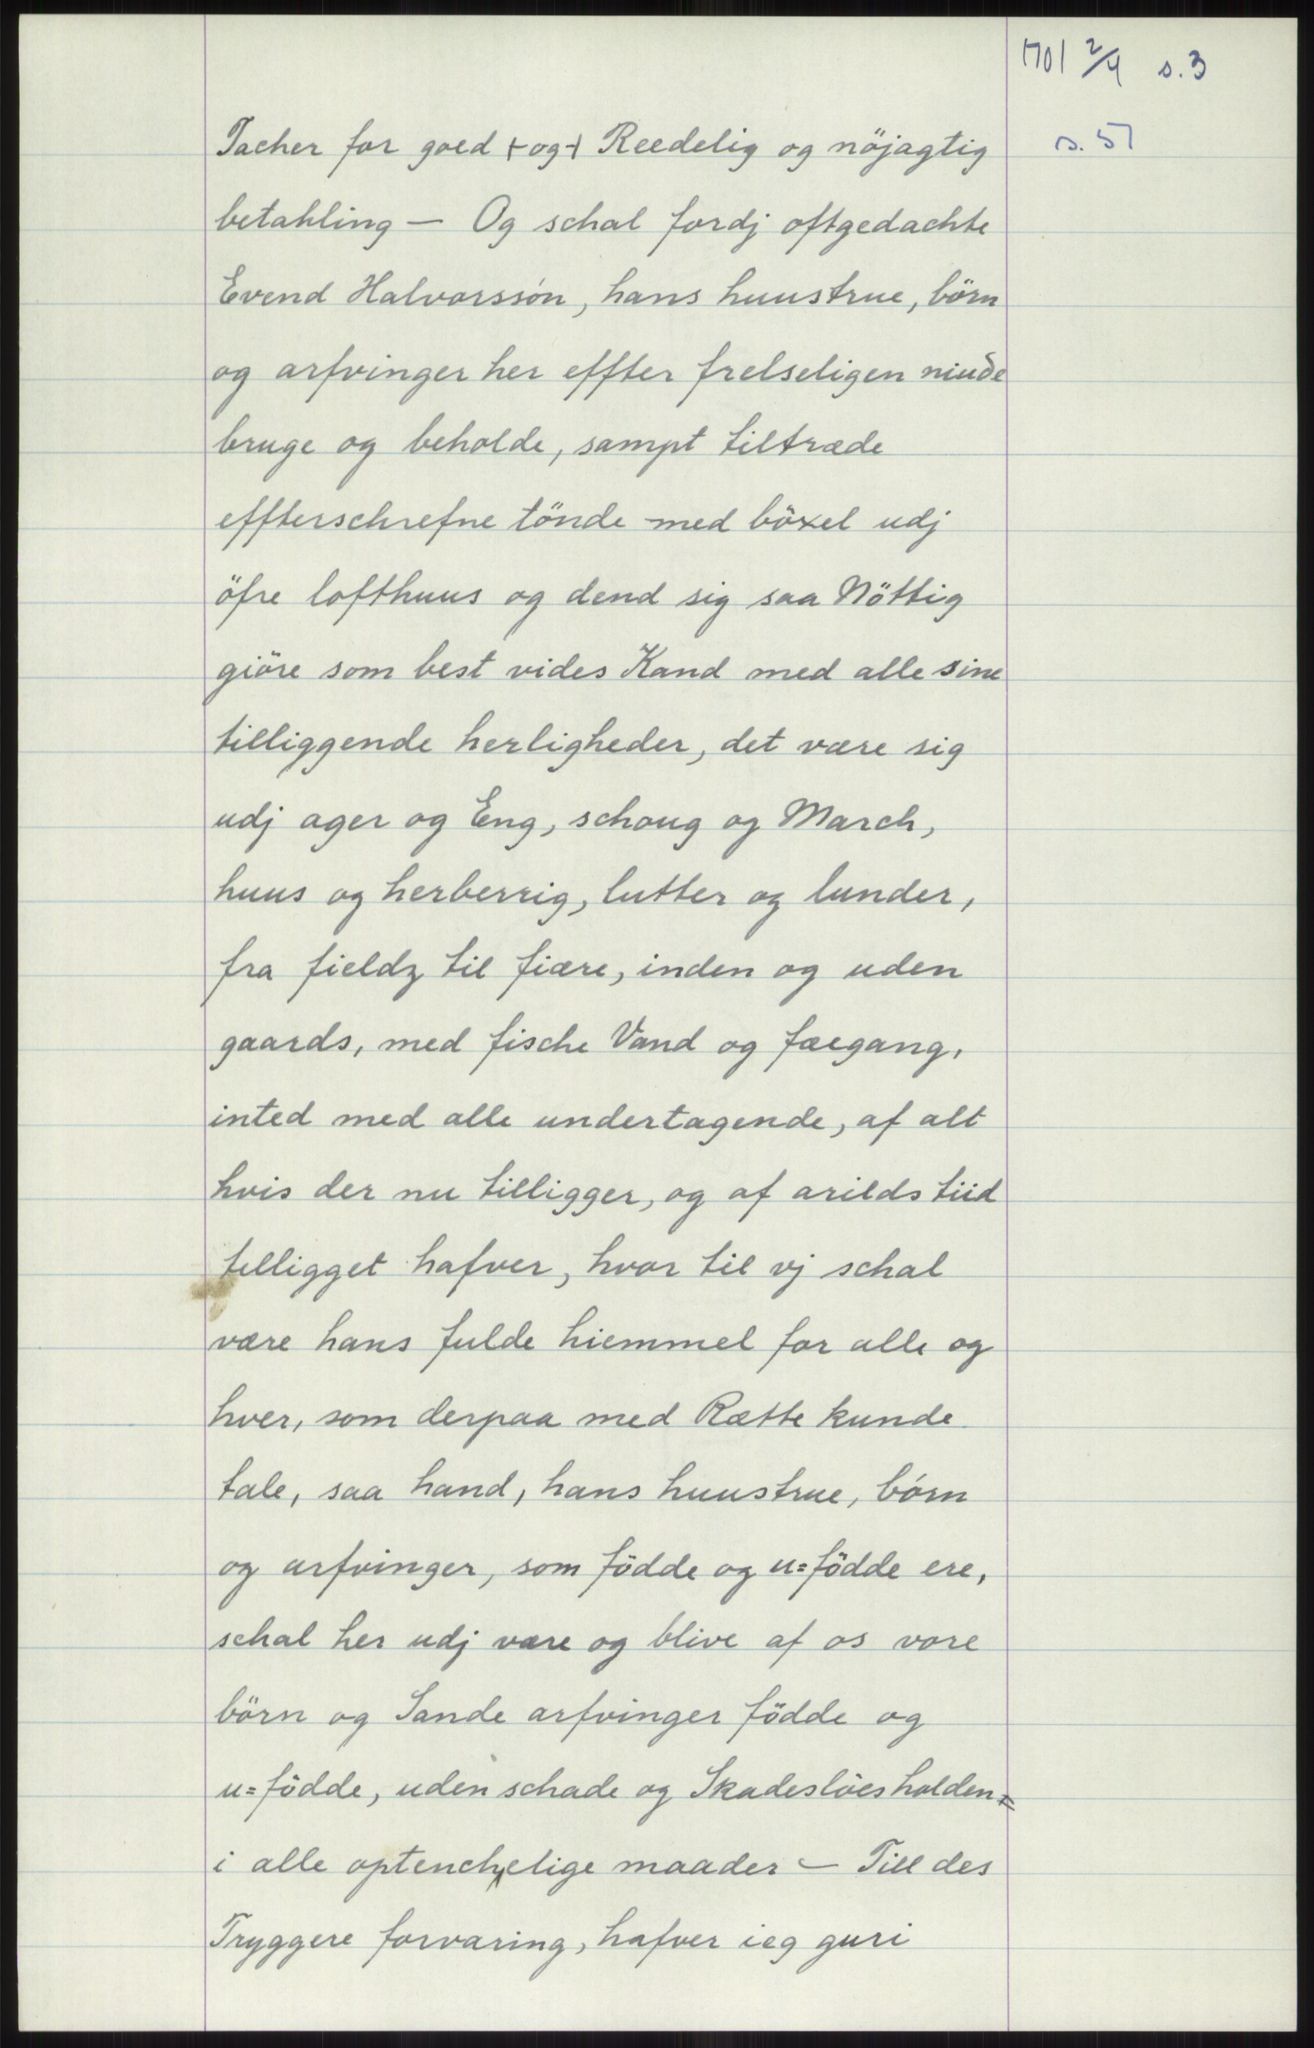 1701 2/4 s.3
s. 5
Tacher for goed + og + Reedelig og nöjagtig
betahling — Og schal fordj oftgedachte
Evend Halvorssön, hans huustrue, börn
og arfvinger her effter frelseligen niude
bruge og beholde, sampt tiltræde
effterschrefne tönde med böxel udj
öfre lofthuus og dend sig saa Nöttig
giöre som best vides Kand med alle sine
tilliggende herligheder, det være sig
udj ager og Eng, schoug og March,
huus og herberrig, lutter og lunder,
fra fieldz til fiære, inden og uden
gaards, med fische Vand og fæegang,
inted med alle undertagende, af alt
hvis der nu tilligger, og af arilds tiid
telligget hafver, hvor til vj schal
være hans fulde hiemmel for alle og
hver, som derpaa med Rætte kunde
tale, saa hand, hans huustrue, börn
og arfvinger, som födde og u=födde ere,
schal her udj være og blive af os vore
börn og Sande arfvinger födde og
u=födde, uden schade og Skadeslöesholden=
i alle optenchelige maader — Till des
Tryggere forvaring, hafver ieg guri